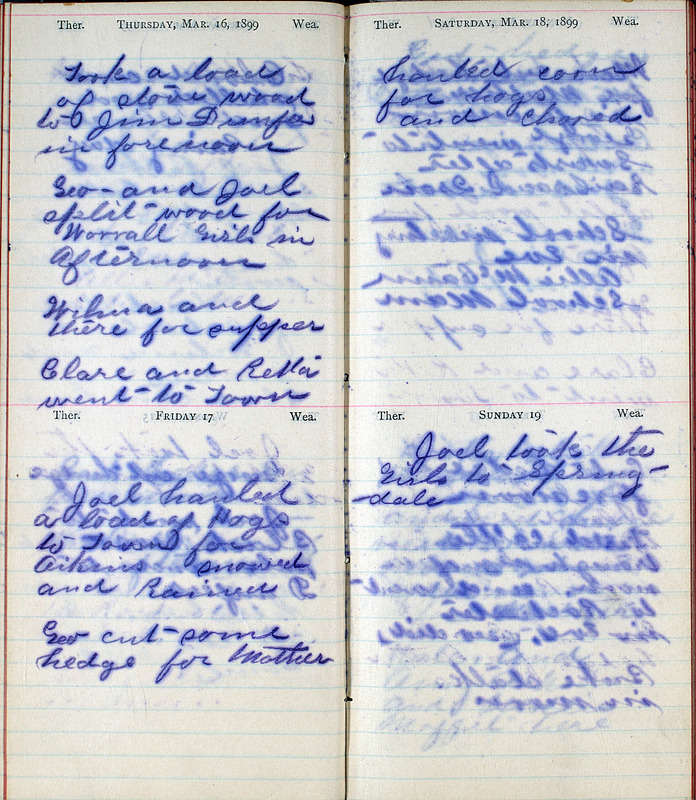 Ther. THURSDAY, MAR. 16, 1899 Wea.
Took a load
of stove wood
to Jim
in forenoon
Geo- and Joel
split wood for
Worrall Girls in
Afternoon
Wilma and
there for supper
Clare and Retta
went to Town
Ther. FRIDAY 17 Wea.
Joel hauled
a load of Hogs
to Town for
Aikins snowed
and Rained
Geo cut some
hedge for Mother
Ther. SATURDAY, MAR. 18, 1899 Wea.
hauled corn
for hogs
and chored
Ther. SUNDAY 19 Wea.
Joel took the
Girls to Spring-
-dale